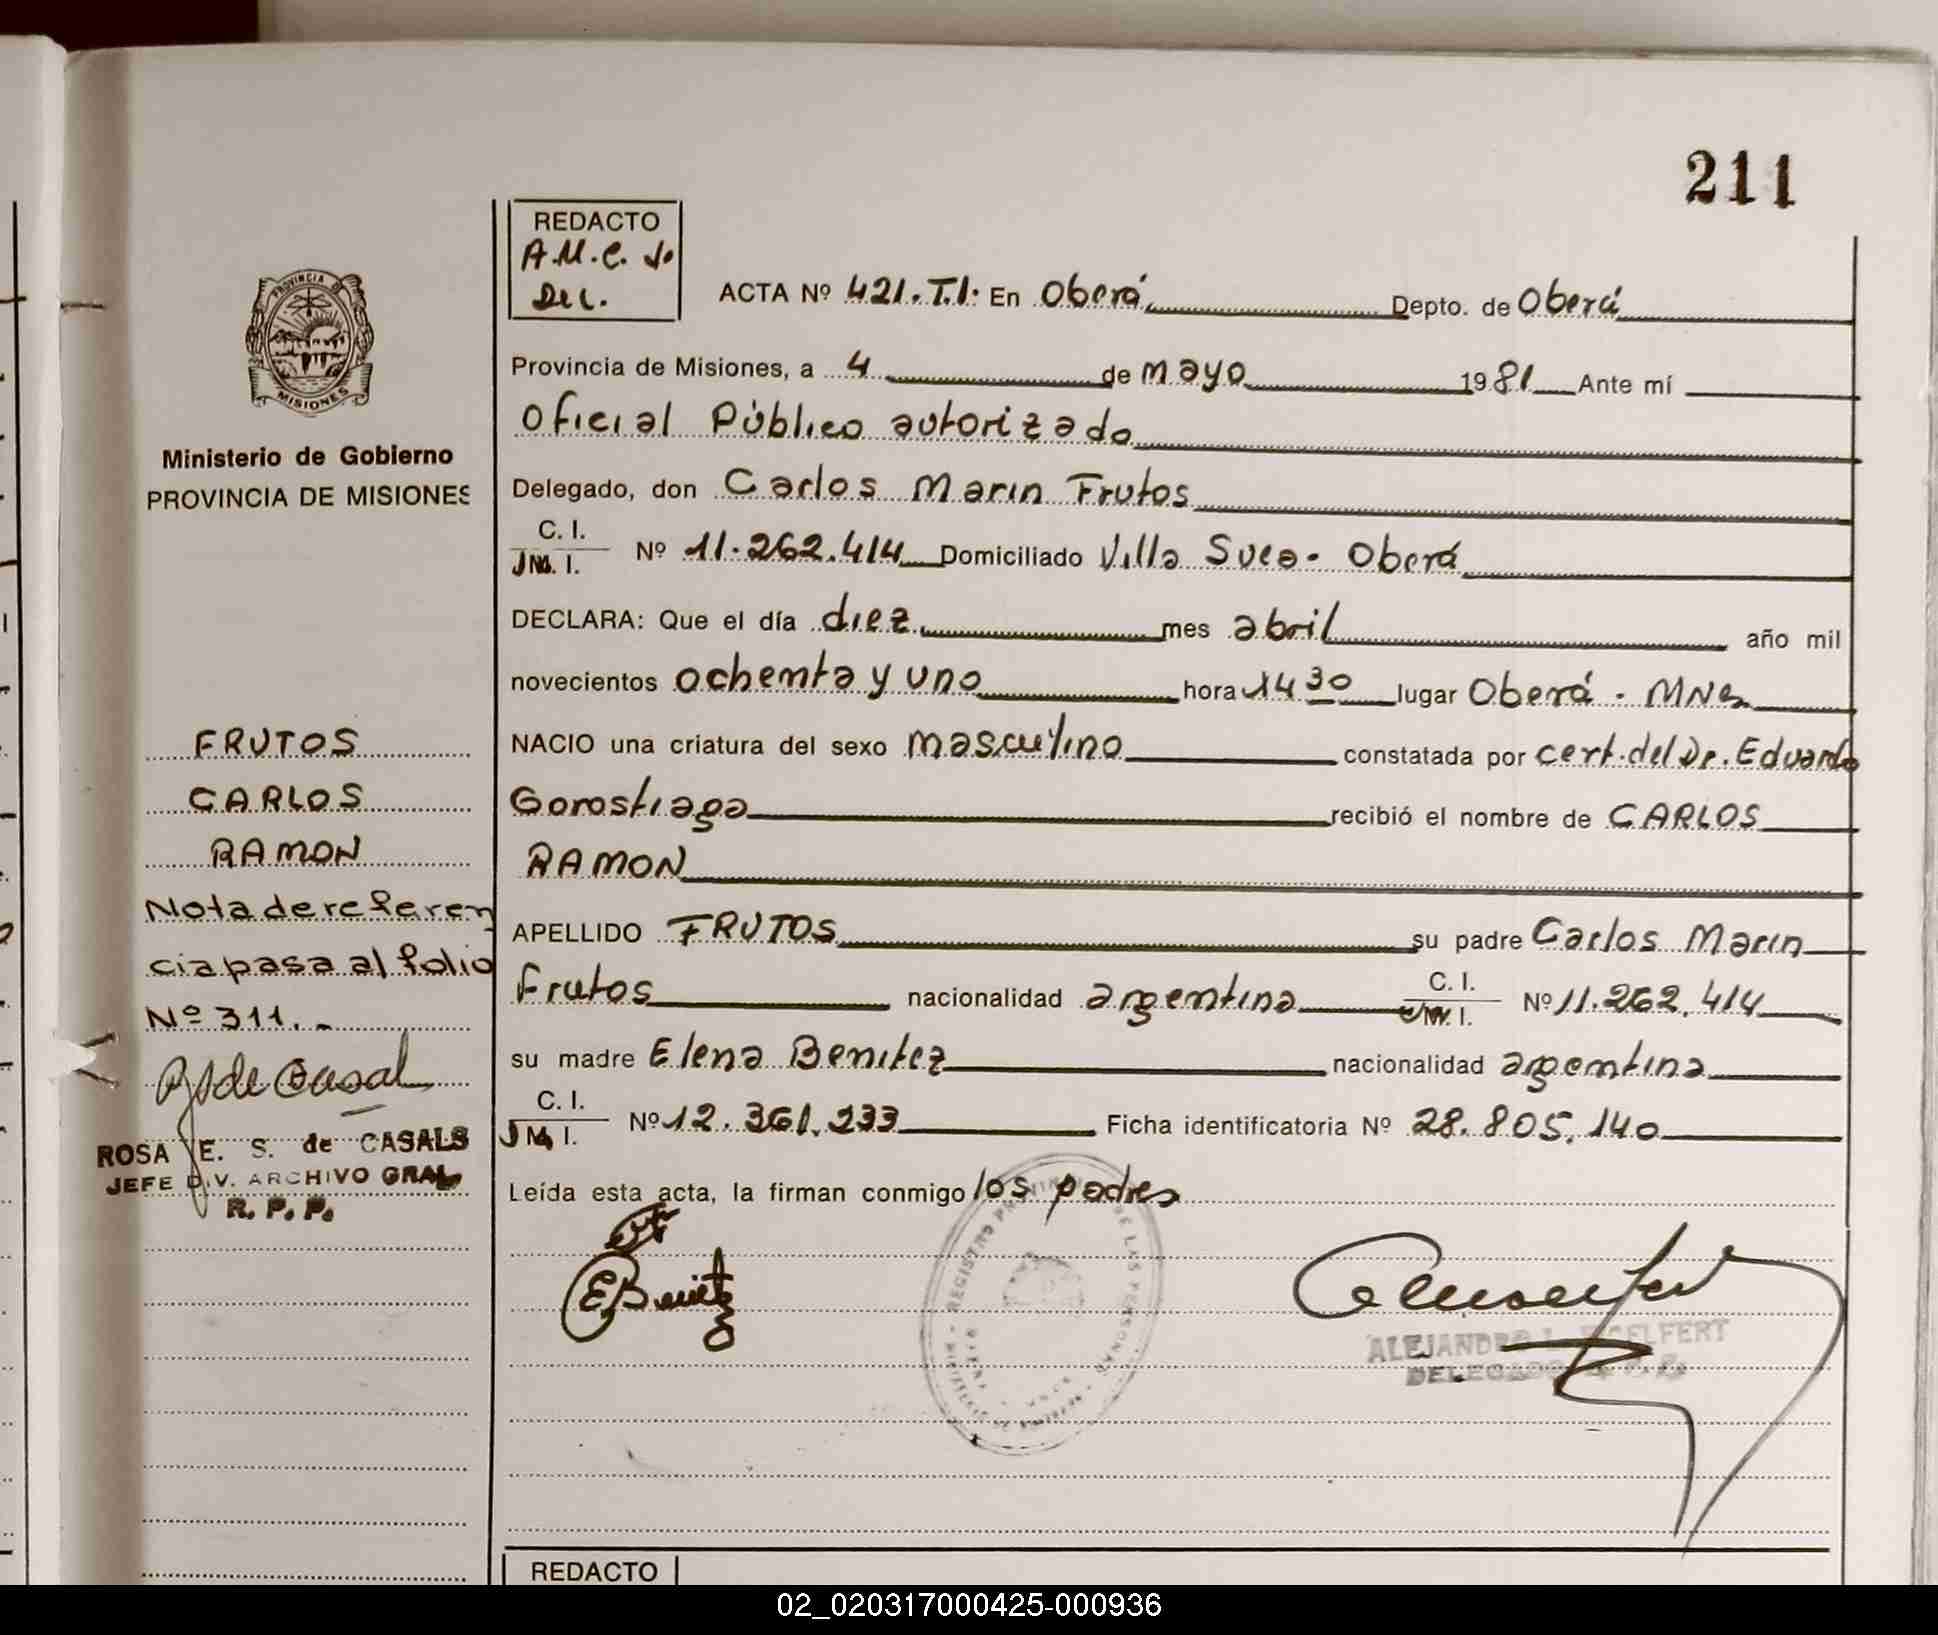 211
REDACTO
A.M.C. Jo
Del.
ACTA Nº 421.T.I. En Oberá Depto. de Oberá
Provincia de Misiones, a 4 de mayo 1981 Ante mí
Oficial Público autorizado
Delegado, don Carlos Marin Frutos
C. I.
M. I. Nº 11.262.414 Domiciliado Villa Svea - Oberá
DECLARA: Que el día diez mes abril año mil
novecientos ochenta y uno hora 14 30 lugar Oberá - MNes
NACIO una criatura del sexo masculino constatada por cert. del Dr. Eduardo
Gorostiaga recibió el nombre de CARLOS
RAMON
APELLIDO FRUTOS su padre Carlos Marin
Frutos nacionalidad argentina C. I. M. I. Nº 11.262.414
su madre Elena Benitez nacionalidad argentina
C. I.
M. I. Nº 12.361.233 Ficha identificatoria Nº 28.805.140
Leída esta acta, la firman conmigo los padres
E. Benitez
ALEJANDRO L.
DELEGADO
REDACTO
PROVINCIA DE
MISIONES
Ministerio de Gobierno
PROVINCIA DE MISIONES
FRUTOS
CARLOS
RAMON
Nota de referen
cia pasa al folio
Nº 311.-
R S de Casal
ROSA E. S. de CASALS
JEFE DIV. ARCHIVO GRAL.
R. P. P.
REGISTRO PROVINCIAL DE LAS PERSONAS
02_020317000425-000936